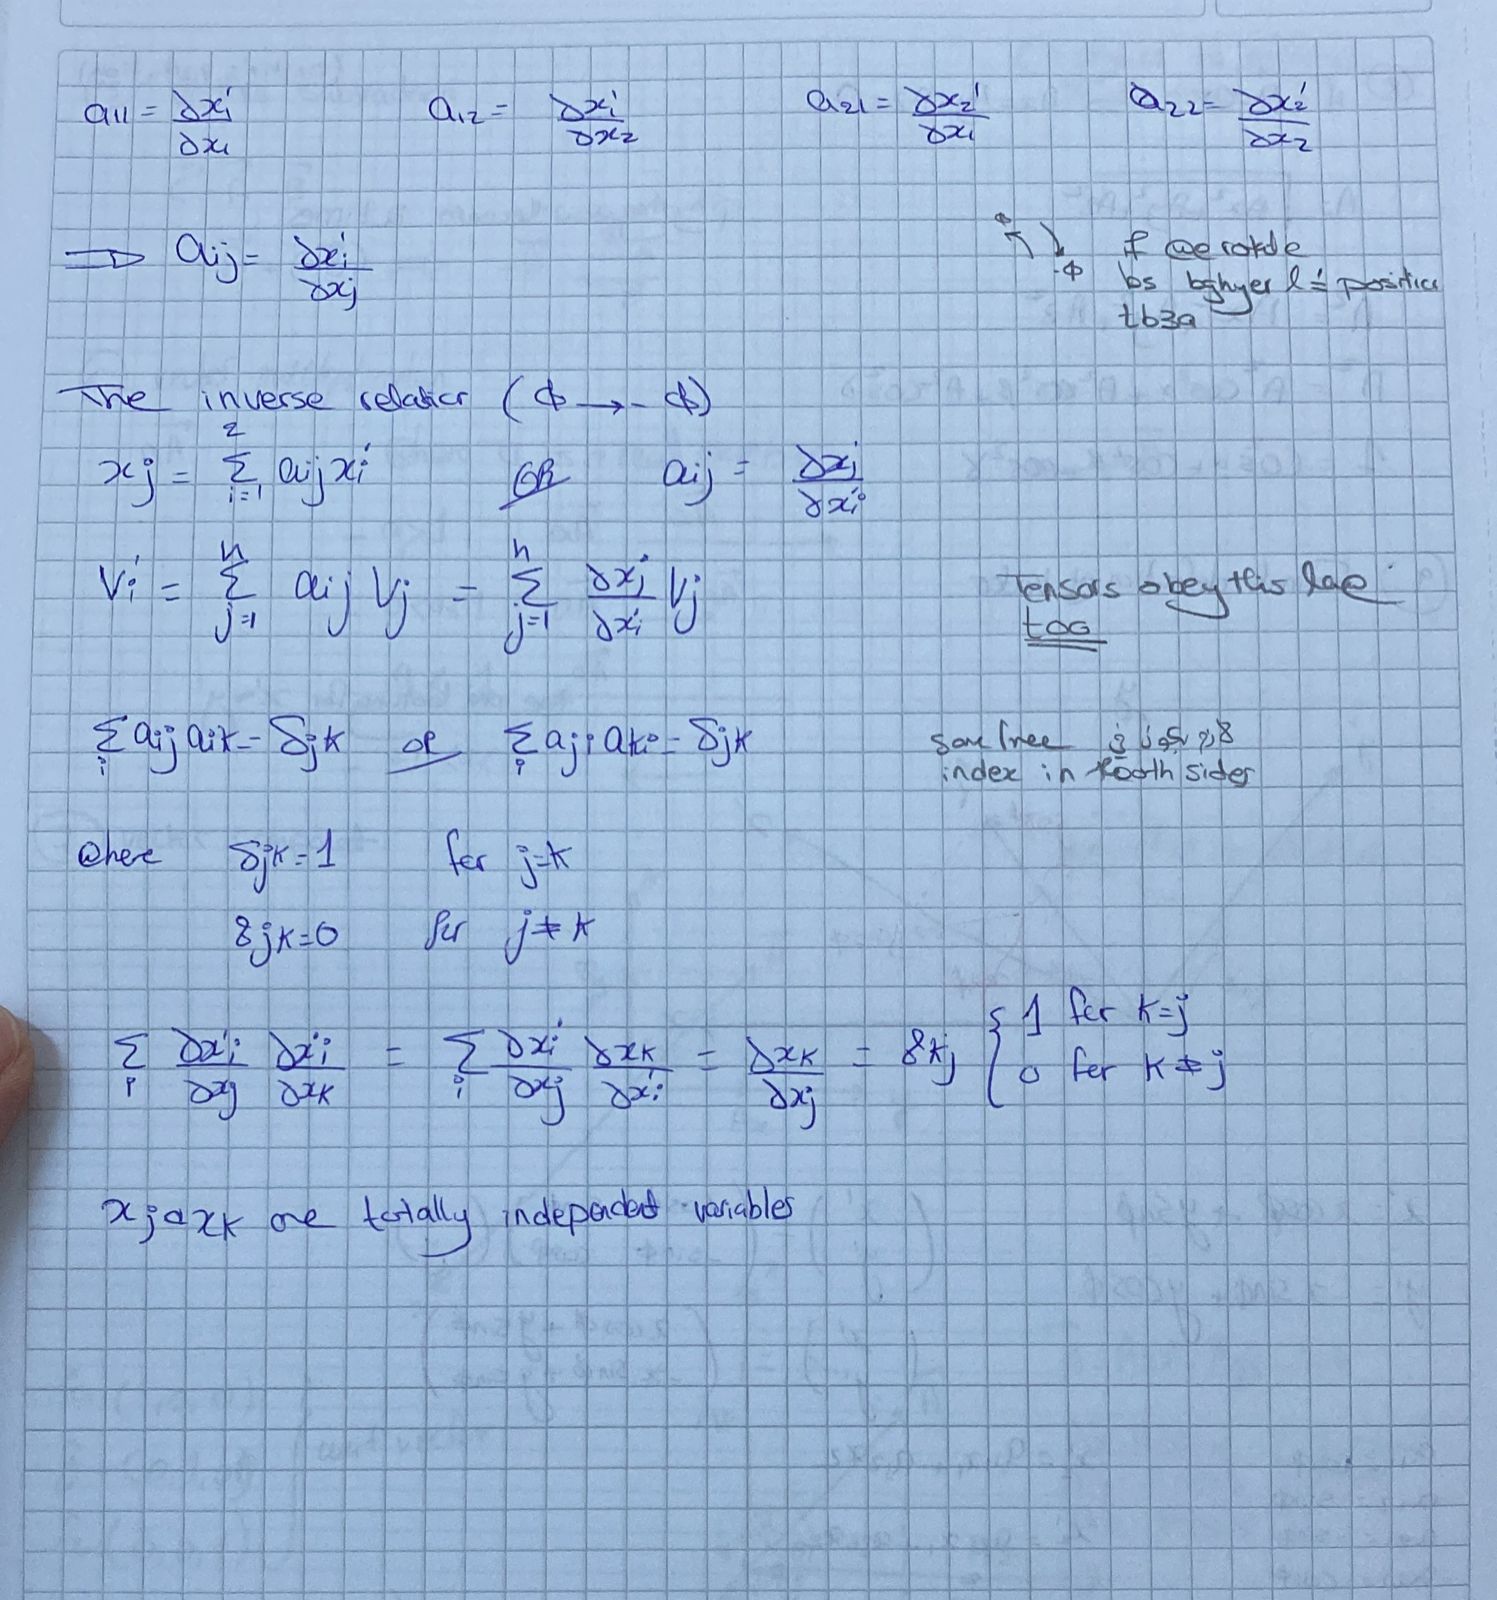 a11 = ∂x₁'/∂x₁ a12 = ∂x₁'/∂x₂ a21 = ∂x₂'/∂x₁ a22 = ∂x₂'/∂x₂
⟹ aij = ∂xi'/∂xj
ϕ -ϕ if we rotate
bs bghyer l position
tb3a
The inverse relation (ϕ → -ϕ)
xj = Σ_{i=1}^{2} aij xi' OR aij = ∂xj/∂xi'
Vi' = Σ_{j=1}^{n} aij Vj = Σ_{j=1}^{n} ∂xj/∂xi' Vj
Tensors obey this law
too
Σ_i aij aik = δjk or Σ_i aji aki = δjk
free
index in both sides
where δjk = 1 for j=k
δjk = 0 for j≠k
Σ_i ∂xi'/∂xj ∂xi'/∂xk = Σ_i ∂xi'/∂xj ∂xk/∂xi' = ∂xk/∂xj = δkj { 1 for k=j
0 for k≠j
xj & xk are totally independent variables